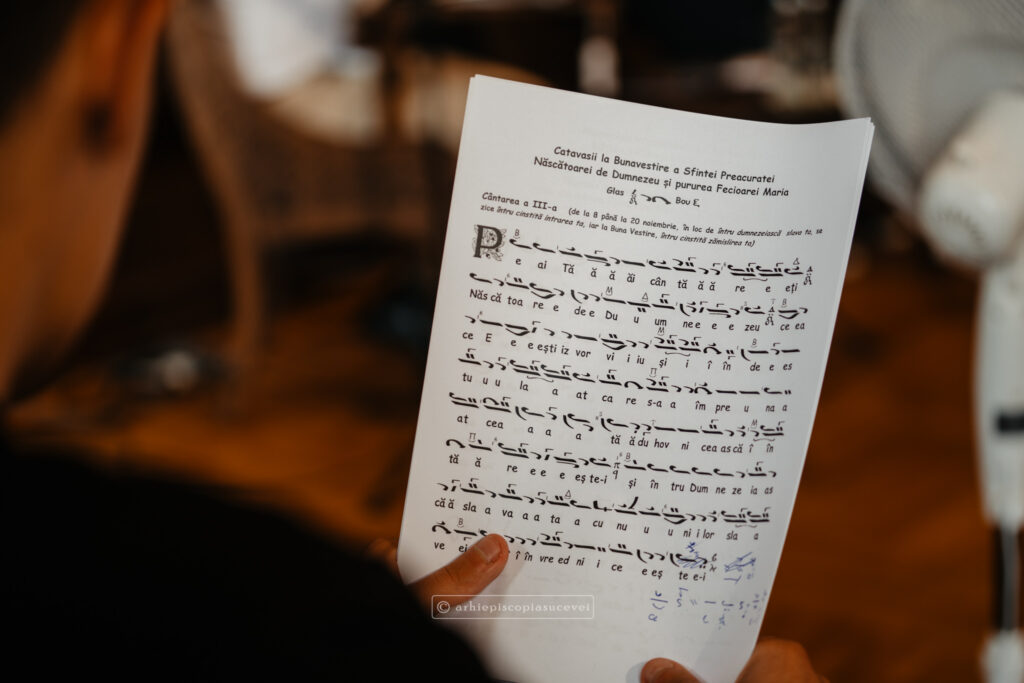 Catavasii la Bunavestire a Sfintei Preacuratei
Născătoarei de Dumnezeu și pururea Fecioarei Maria
Glas Bou
Cântarea a III-a (de la 8 până la 20 noiembrie, în loc de întru dumnezeiască slava ta, se
zice întru cinstită intrarea ta, iar la Buna Vestire, întru cinstită zămislirea ta)
P e ai Tă ă ă ăi cân tă ă ă re e eți
Năs că toa re e de e Du u um ne e e e zeu ce ea
ce E e e ești iz vor vi i iu și i î în de e es
tu u u la a at ca re s-a a îm pre u na a
at cea a a a tă ă du hov ni cea as că î în
tă ă re e e e eș te-i și în tru Dum ne ze ia as
că ă sla a va a a ta a cu nu u u ni i lor sla a
ve î în vre ed ni i ce e eș te e-i
© arhiepiscopiasucevei